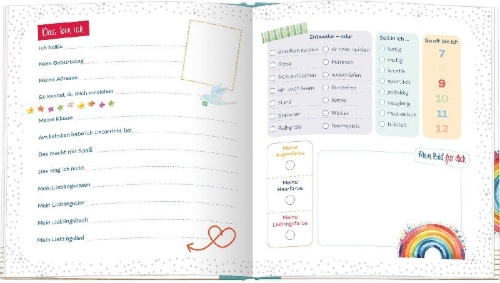 Das bin ich
Ich heiße
Mein Geburtstag
Meine Adresse
So kannst du mich erreichen
Meine Klasse
Am liebsten habe ich Unterricht bei
Das macht mir Spaß
Das mag ich nicht
Mein Lieblingsessen
Mein Lieblingstier
Mein Lieblingsbuch
Mein Lieblingslied
Entweder – oder
draußen spielen
drinnen spielen
Pizza
Pommes
ausschlafen
Fernsehen
Hund
Katze
Sommer
Winter
So bin ich ...
lustig
mutig
sportlich
neugierig
musikalisch
fröhlich
So alt bin ich
7
8
9
10
11
12
Meine
Augenfarbe
Meine
Haarfarbe
Meine
Lieblingsfarbe
Mein Bild für dich